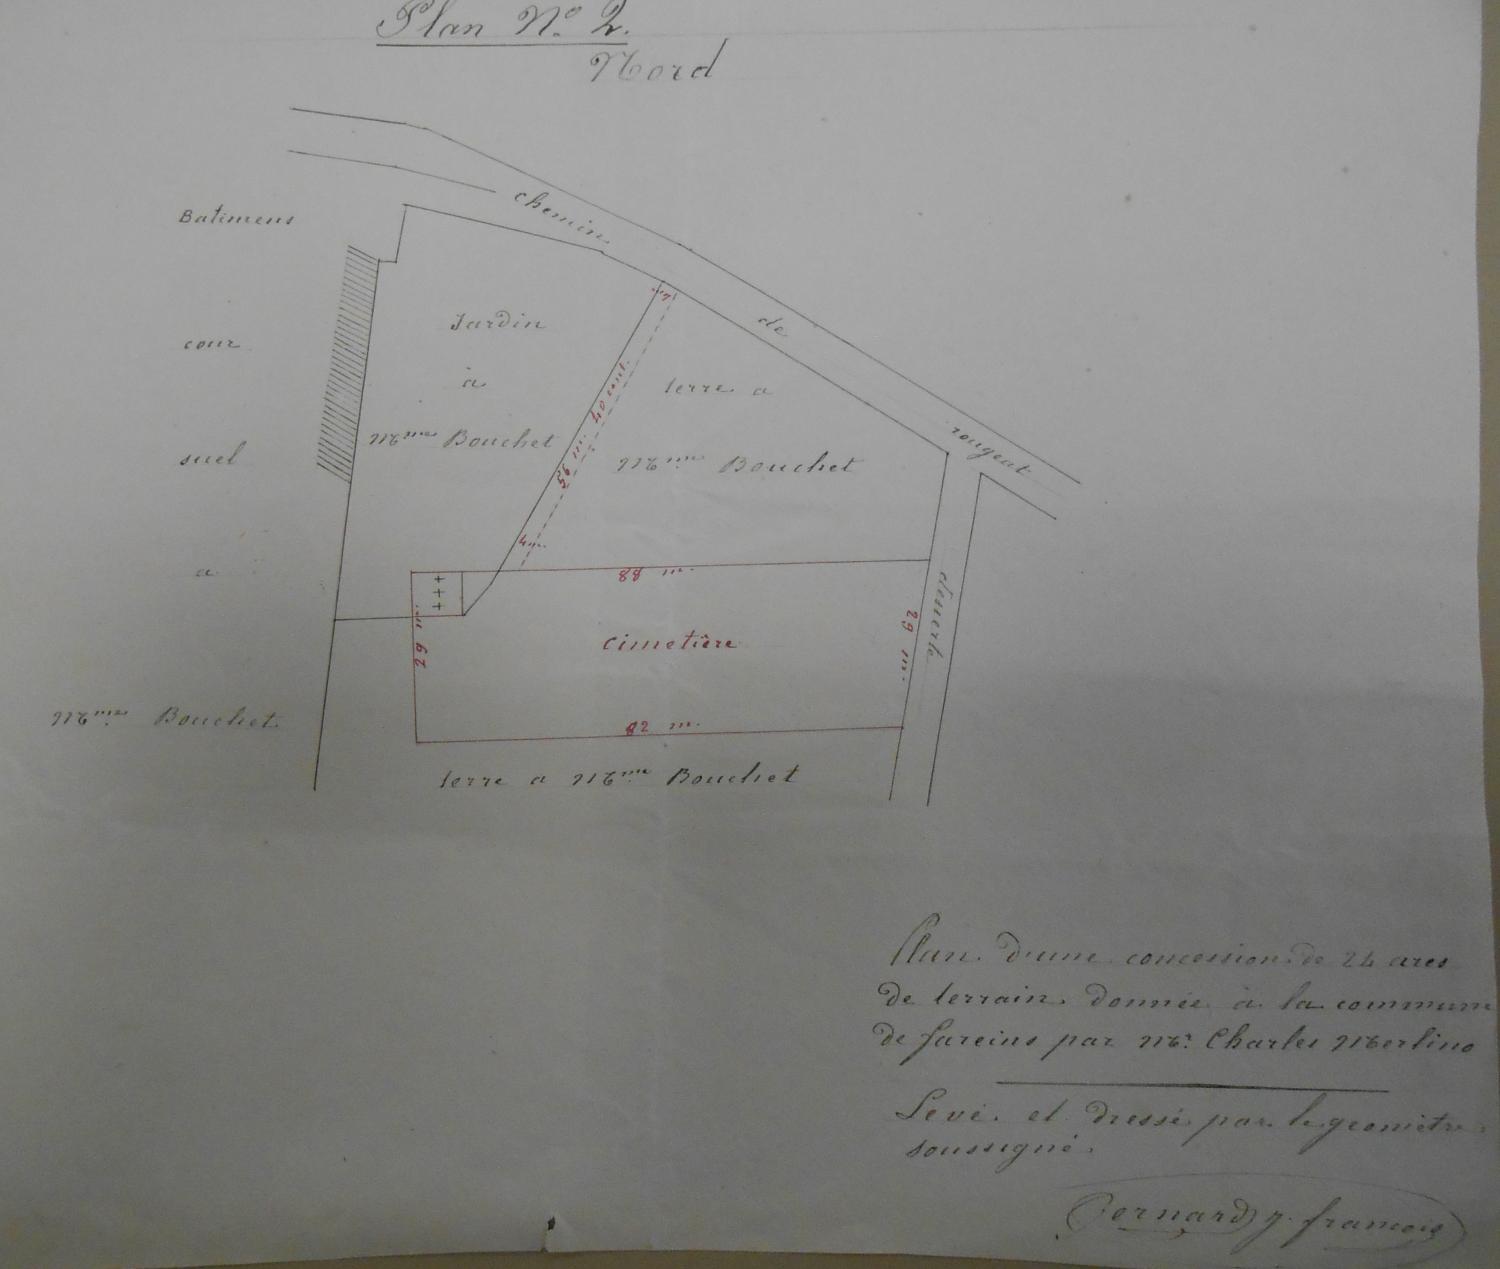 Plan N.o 2.
Nord
chemin
de
rougeat
Batimens
cour
suel
a
Mme Bouchet
Jardin
a
Mme Bouchet
4 m.
56 m. 40 cent.
4 m.
terre a
Mme Bouchet
88 m.
29 m.
cimetière
29 m.
82 m.
desserte
terre a Mme Bouchet
Plan d'une concession de 24 ares
de terrain donnée à la commune
de fareins par Mr. Charles Merlino
Levé et dressé par le geomètre
soussigné.
Bernard J. francois